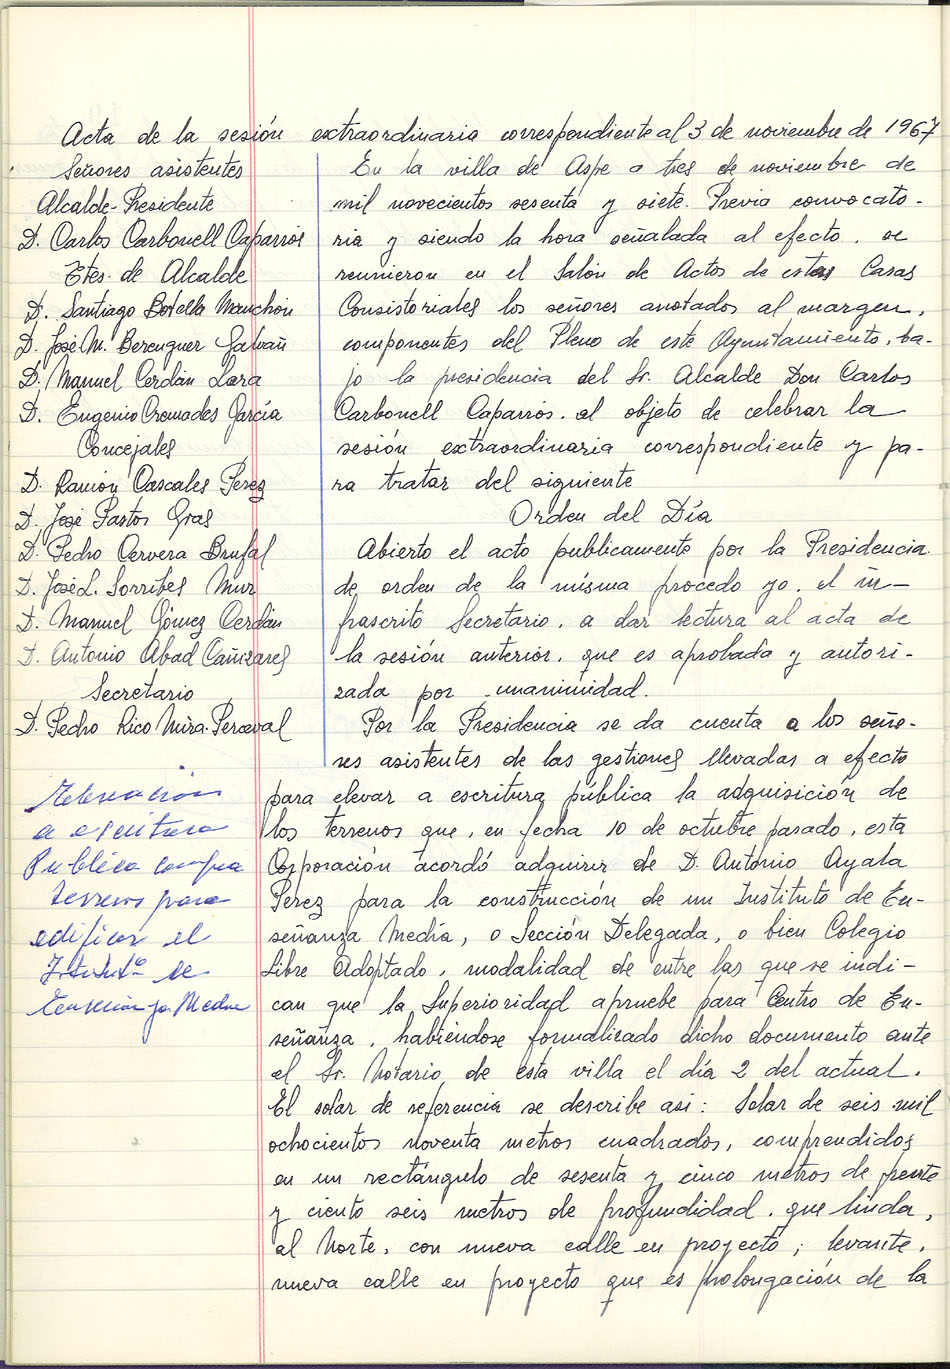 Acta de la sesión extraordinaria correspondiente al 3 de noviembre de 1967
Señores asistentes
Alcalde-Presidente
D. Carlos Carbonell Caparrós
Ttes. de Alcalde
D. Santiago Botella Manchón
D. José M. Berenguer Galvañ
D. Manuel Cerdán Lara
D. Eugenio Cremades García
Concejales
D. Ramón Cascales Pérez
D. José Pastor Gras
D. Pedro Cervera Brufal
D. José L. Sorribes Mur
D. Manuel Gómez Cerdán
D. Antonio Abad Cañizares
Secretario
D. Pedro Rico Mira-Perceval
En la villa de Aspe a tres de noviembre de
mil novecientos sesenta y siete. Previa convocato-
ria y siendo la hora señalada al efecto, se
reunieron en el Salón de Actos de estas Casas
Consistoriales los señores anotados al margen,
componentes del Pleno de este Ayuntamiento, ba-
jo la presidencia del Sr. Alcalde Don Carlos
Carbonell Caparrós, al objeto de celebrar la
sesión extraordinaria correspondiente y pa-
ra tratar del siguiente
Orden del Día
Abierto el acto publicamente por la Presidencia
de orden de la misma procedo yo, el in-
frascrito Secretario, a dar lectura al acta de
la sesión anterior, que es aprobada y autori-
zada por unanimidad.
Por la Presidencia se da cuenta a los seño-
res asistentes de las gestiones llevadas a efecto
para elevar a escritura pública la adquisición de
los terrenos que, en fecha 10 de octubre pasado, esta
Corporación acordó adquirir de D. Antonio Ayala
Perez para la construcción de un Instituto de En-
señanza Media, o Sección Delegada, o bien Colegio
Libre Adoptado, modalidad de entre las que se indi-
can que la Superioridad apruebe para Centro de En-
señanza, habiéndose formalizado dicho documento ante
el Sr. Notario de esta villa el día 2 del actual.
El solar de referencia se describe asi: Solar de seis mil
ochocientos noventa metros cuadrados, comprendidos
en un rectángulo de sesenta y cinco metros de frente
y ciento seis metros de profundidad, que linda,
al Norte, con nueva calle en proyecto; levante,
nueva calle en proyecto que es prolongación de la
a escritura
Publica compra
terrenos para
edificar el
Instituto de
Enseñanza Media